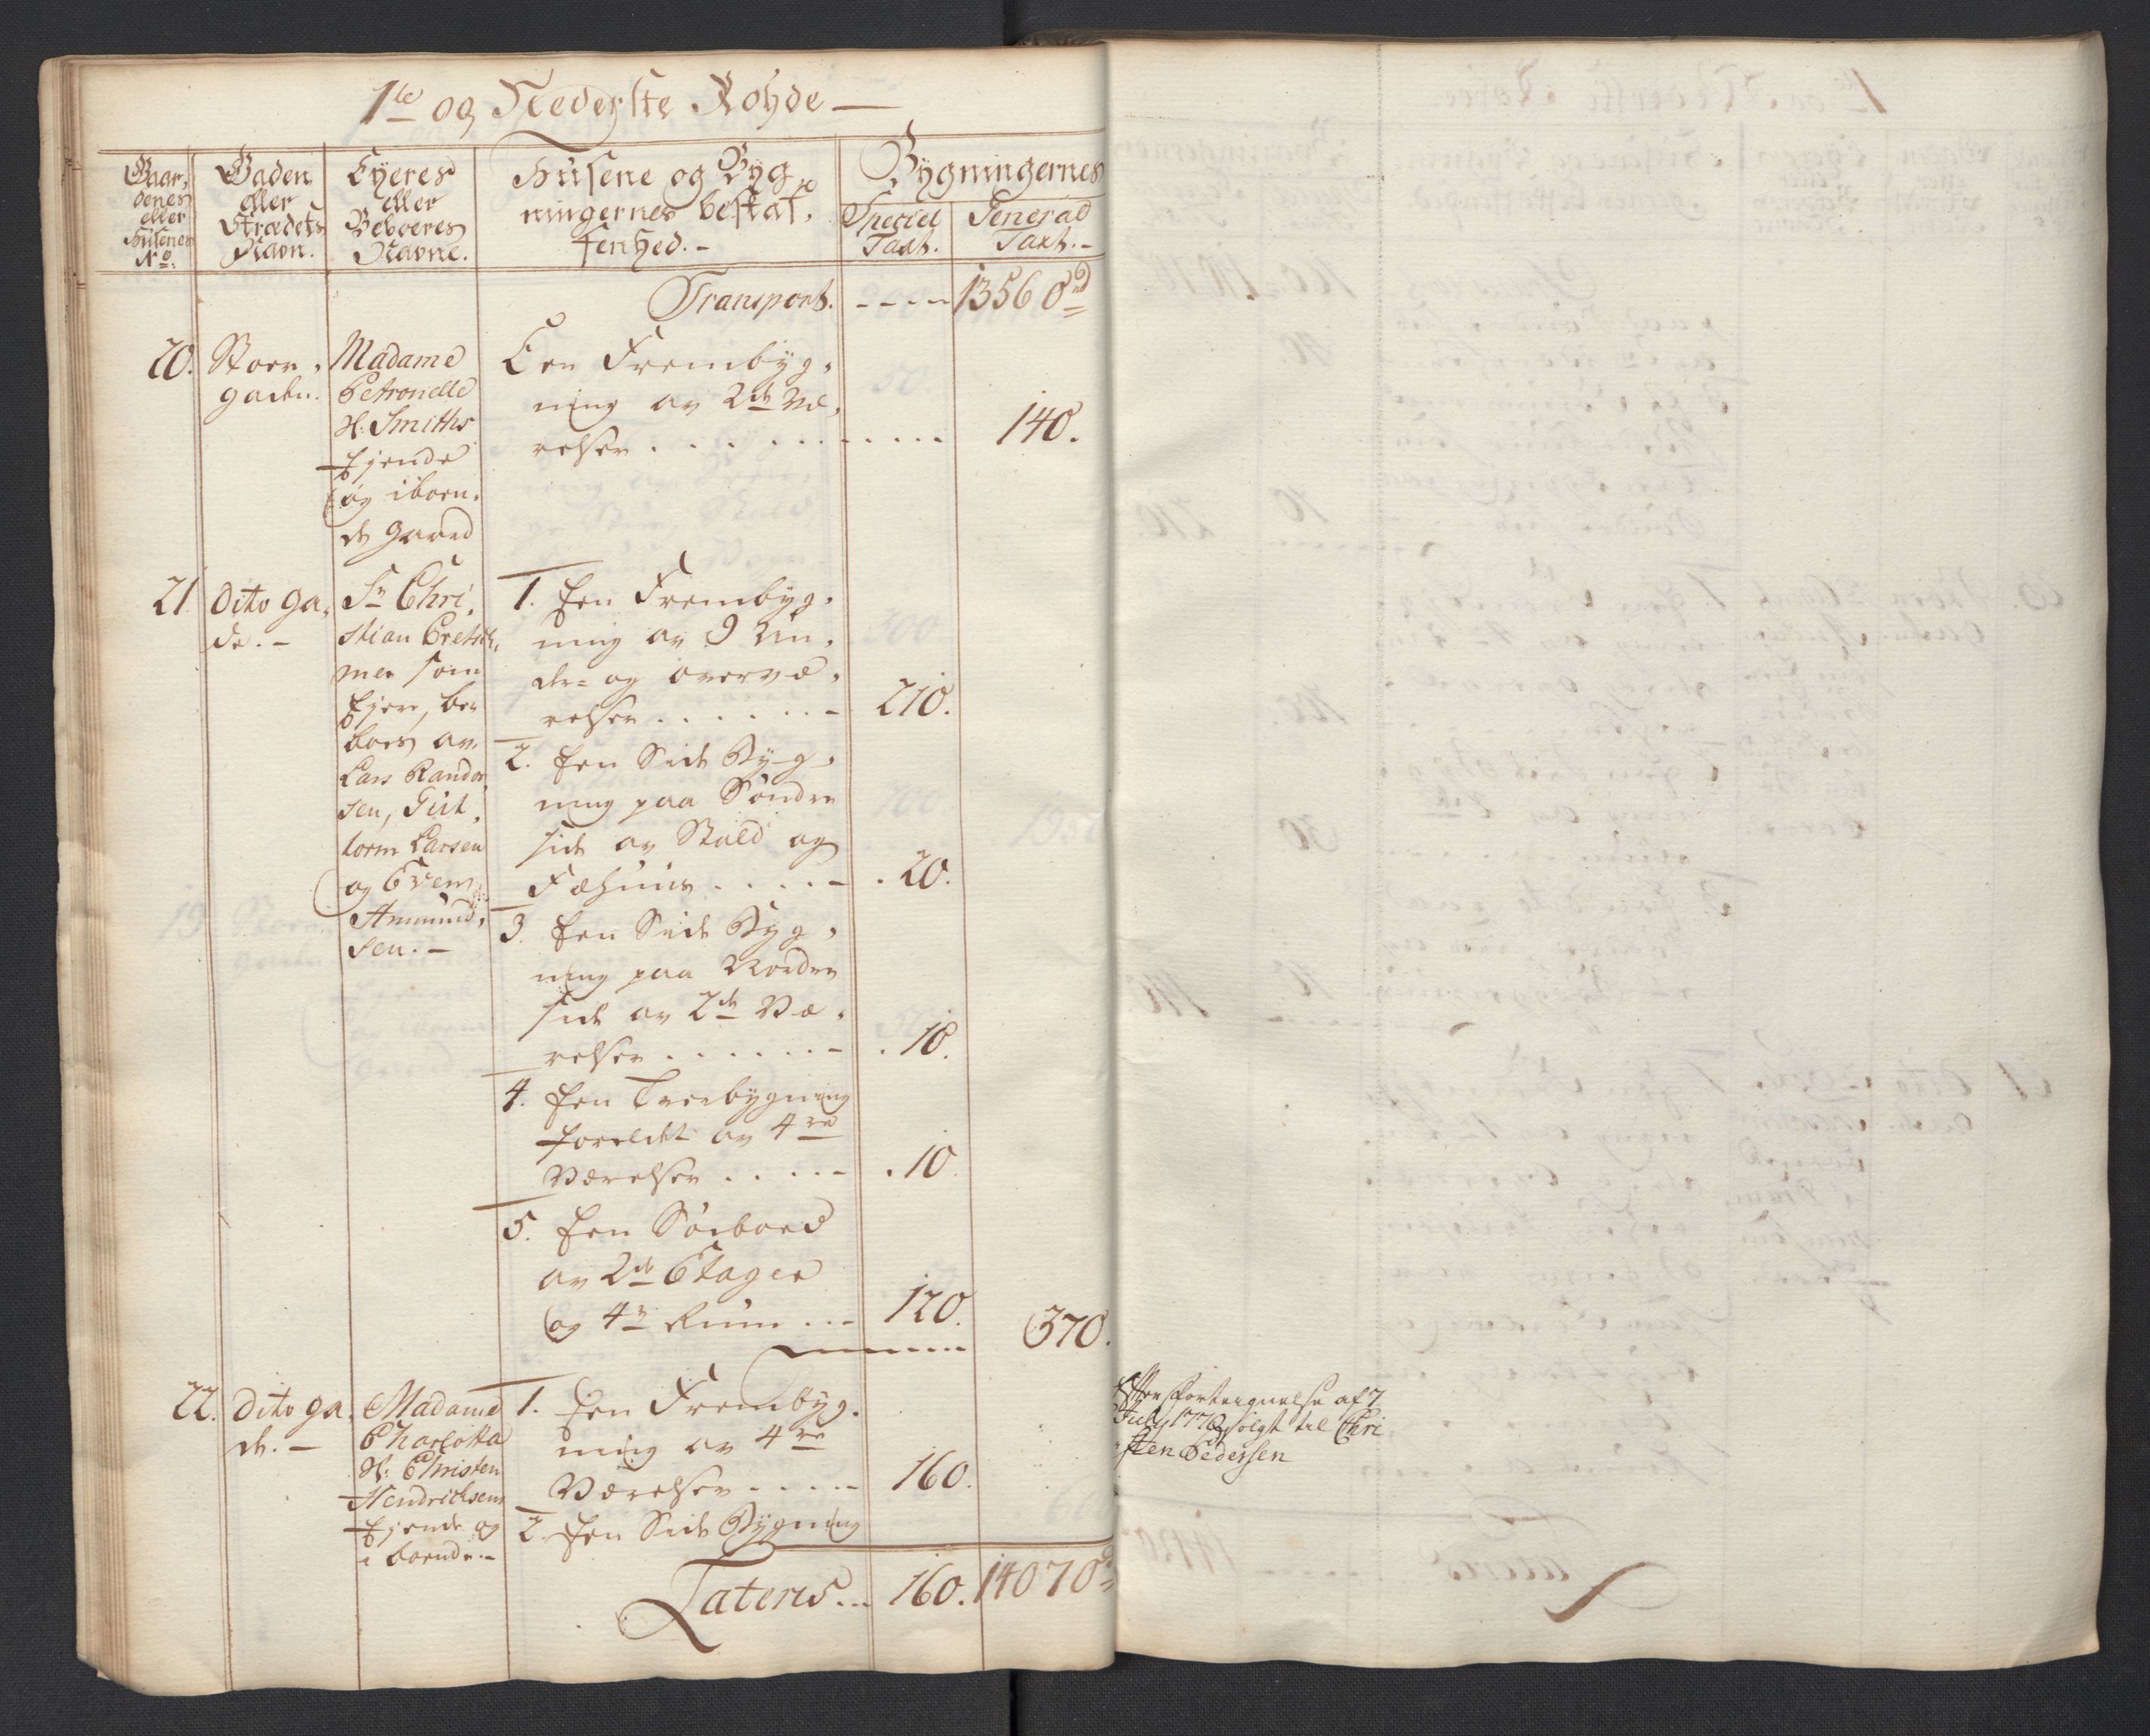 1te og Nederste Rohde
Gaar,
denes
eller
Husenes
No:
Gaden
eller
Strædets
Navn.
Eyeres
eller
Beboeres
Navne.
Husene og Byg,
ningernes beskaf,
fenhed.
Bygningernes
Speciel
Taxt.
General
Taxt.
Transport. 13560 rd
20.
Stoer,
gaden.
Madame
Petronelle
H: Smiths
Ejende
og iboen,
de Gaard
Een Frembyg,
ning av 2de Væ,
relser . . . . . . 140.
21
Dito ga,
de.
Sr Chri,
stian Cretsch,
mer som
Ejere, be
boes av
Lars Randor
sen, Gut,
torm Larsen
og Even
Ammund,
sen.
1. Een Frembyg,
ning av 9 Un,
der= og overvæ,
relser . . . . . . 210.
2. Een Side Byg,
ning paa Søndre
side av Stald og
Fæhuus . . . . . 20.
3. Een Side Byg,
ning paa Nordre
side av 2de Væ,
relser . . . . . . 10.
4. Een Træbygning
foreldet av 4re
Værelser . . . . . 10
5. Een Søeboed
av 2de Etager
og 4re Rum . . . 120. 370.
22.
Dito ga,
de.
Madame
Charlotta
Sl: Christen
Hendrichsens
Ejende og
i boende.
1. Een Frembyg,
ning av 4re
Værelser . . . . 160.
2. Een Side Bygning
Lateris . . . 160. 14070 rd
Efter Fortegnelse af 7
July 1770 solgt til Chri
sten Pedersen